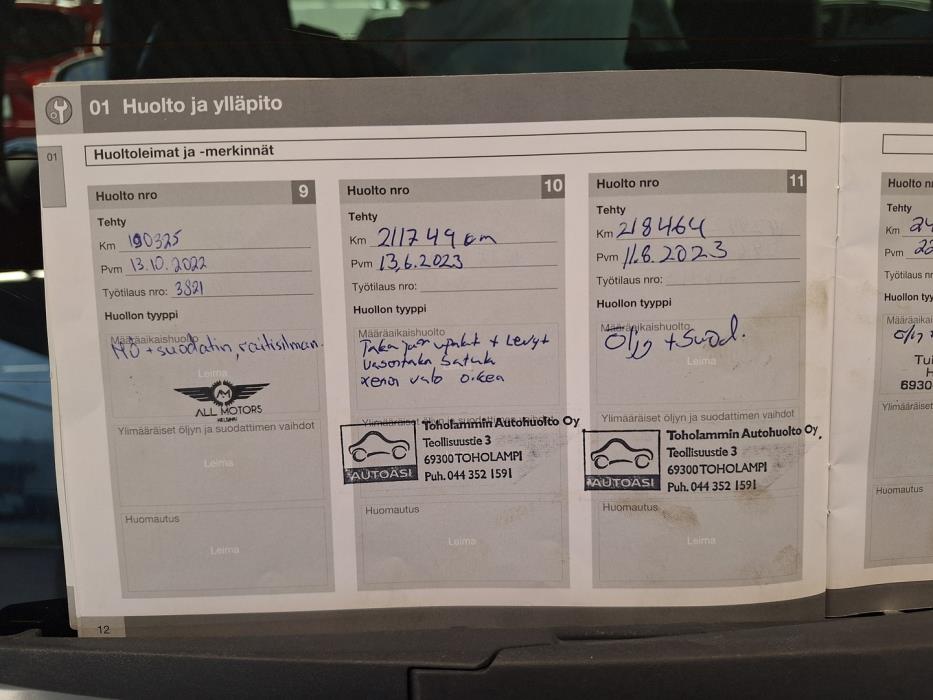 01 Huolto ja ylläpito
01
Huoltoleimat ja -merkinnät
Huolto nro 9
Tehty
Km 190325
Pvm 13.10.2022
Työtilaus nro: 3821
Huollon tyyppi
Määräaikaishuolto
MÖ + suodatin, raitisilman.
Leima
ALL MOTORS
HELSINKI
Ylimääräiset öljyn ja suodattimen vaihdot
Leima
Huomautus
Leima
Huolto nro 10
Tehty
Km 211749 km
Pvm 13,6.2023
Työtilaus nro:
Huollon tyyppi
Määräaikaishuolto
Taka jarrupalat + Levyt
Vasentaka Satula
xenon valo oikea
Ylimääräiset öljyn ja suodattimen vaihdot
Toholammin Autohuolto Oy
Teollisuustie 3
69300 TOHOLAMPI
Puh. 044 352 1591
AUTOASI
Huomautus
Leima
Huolto nro 11
Tehty
Km 218464
Pvm 11.8.2023
Työtilaus nro:
Huollon tyyppi
Määräaikaishuolto
Öljy + suod.
Leima
Ylimääräiset öljyn ja suodattimen vaihdot
Toholammin Autohuolto Oy,
Teollisuustie 3
69300 TOHOLAMPI
Puh. 044 352 1591
AUTOASI
Huomautus
Leima
Huolto n
Tehty
Km 24
Pvm 22
Työtilaus n
Huollon ty
Määräaikai
Tul
H
6930
Ylimääräiset
Huomautus
12